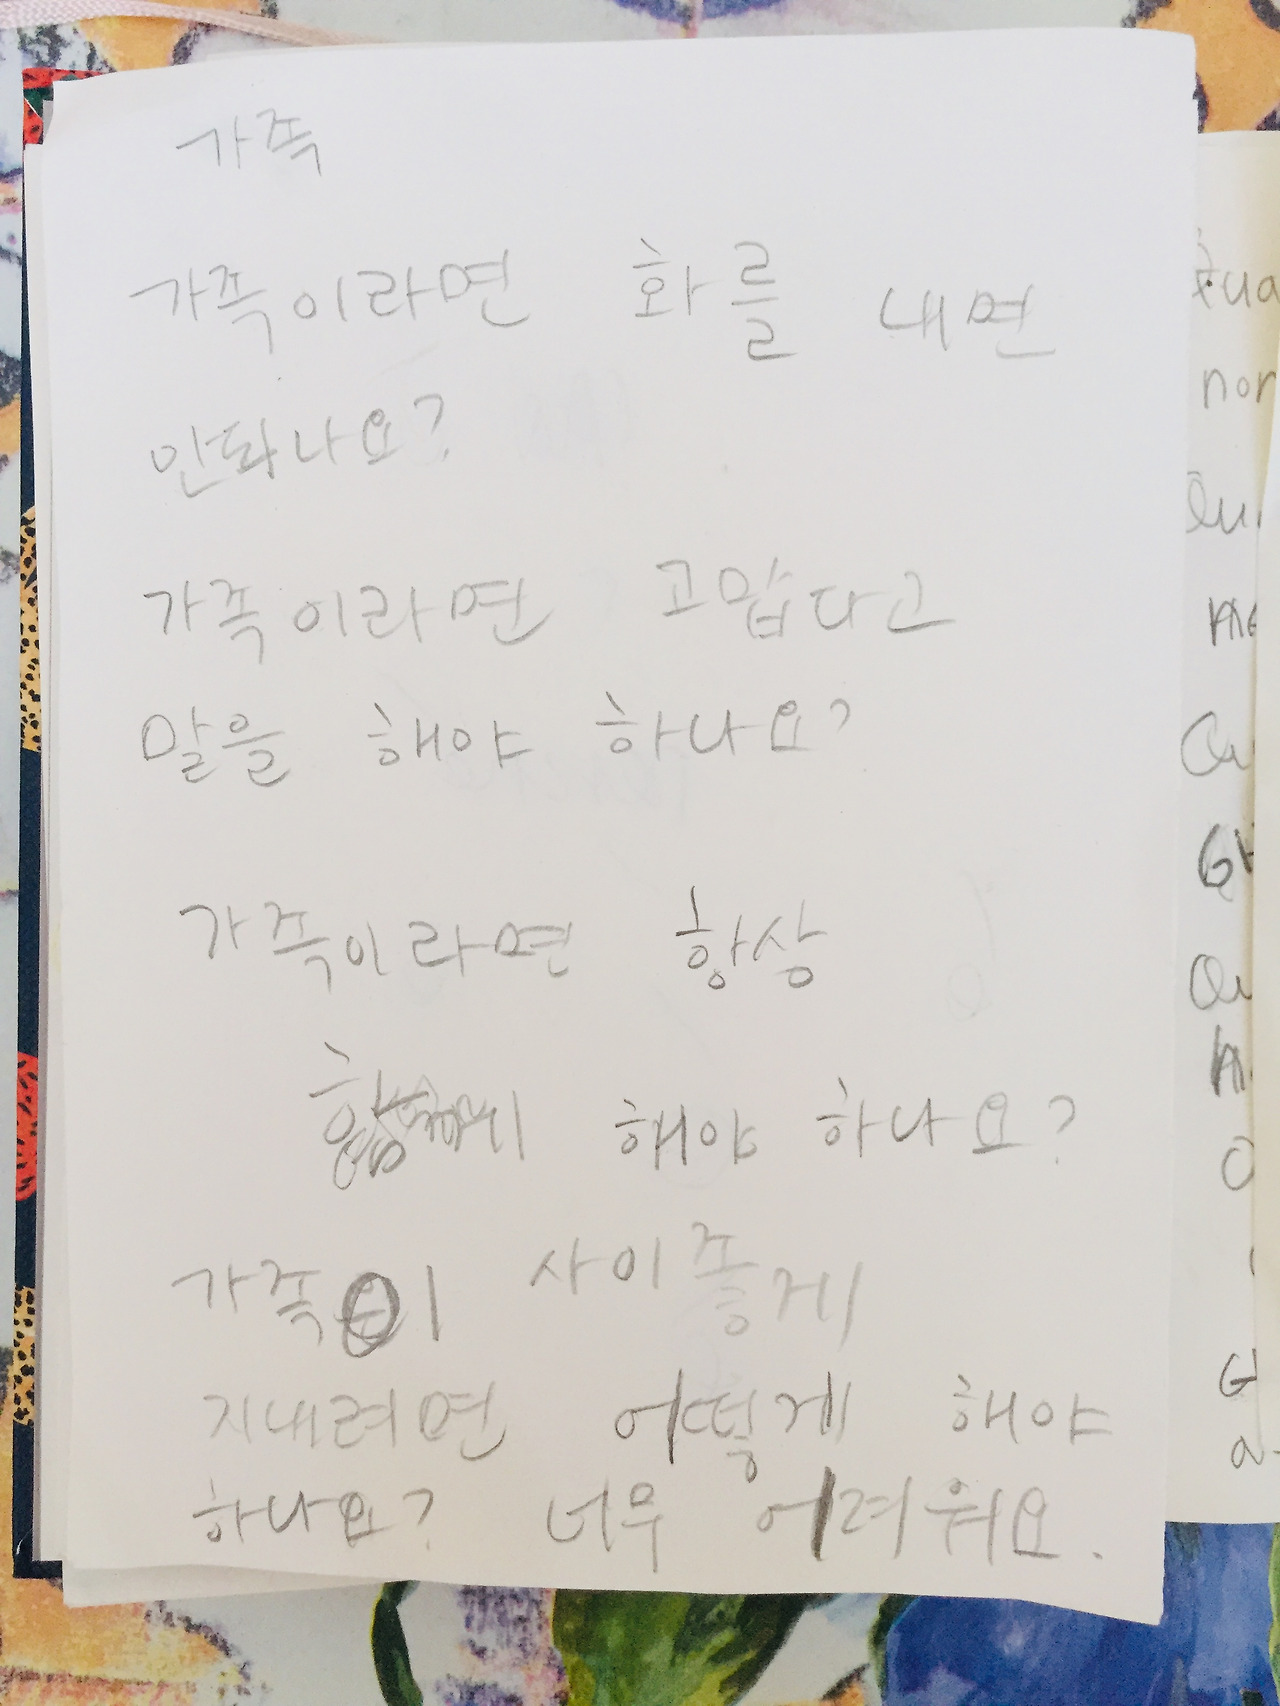 가족
가족이라면 화를 내면
안돠나요?
가족이라면 고맙다고
말을 해야 하나요?
가족이라면 항상
함께 해야 하나요?
가족이 사이좋게
지내려면 어떻게 해야
하나요? 너무 어려워요.